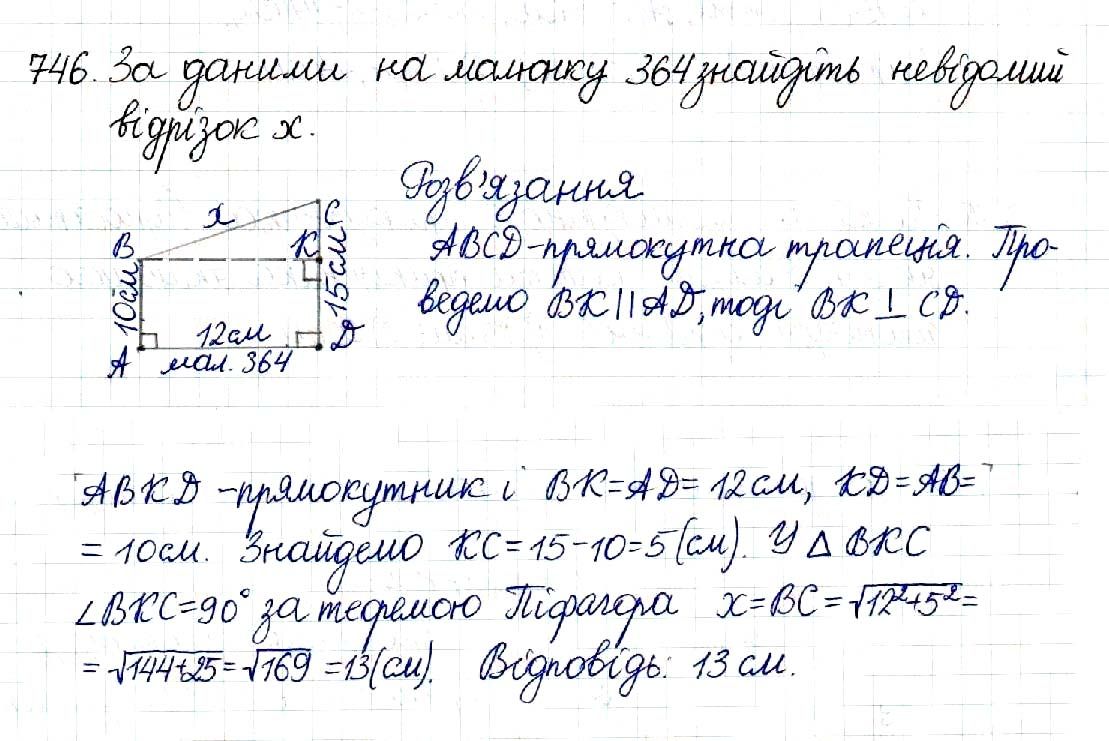 746. За даними на малюнку 364 знайдіть невідомий
відрізок x.
Розв'язання
x
C
B
K
10см
15см
12см
A
D
мал. 364
ABCD-прямокутна трапеція. Про-
ведемо BK||AD, тоді BK⊥CD.
ABKD -прямокутник і BK=AD=12см, KD=AB=
=10см. Знайдемо KC=15-10=5(см). У △BKC
∠BKC=90° за теоремою Піфагора x=BC=√12²+5²=
=√144+25=√169=13(см). Відповідь: 13 см.